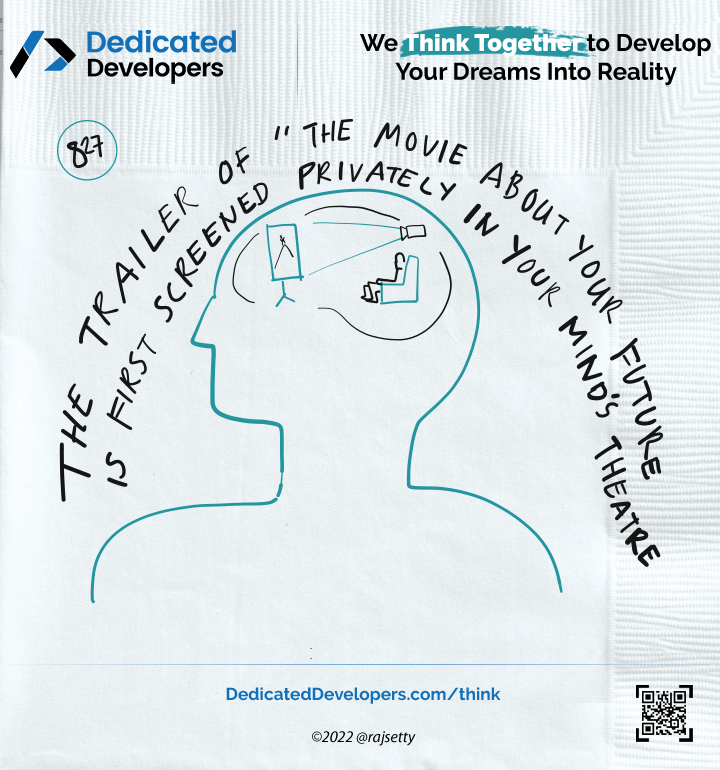 Dedicated
Developers
We Think Together to Develop
Your Dreams Into Reality
827
THE TRAILER OF "THE MOVIE ABOUT YOUR FUTURE
IS FIRST SCREENED PRIVATELY IN YOUR MIND'S THEATRE
DedicatedDevelopers.com/think
©2022 @rajsetty